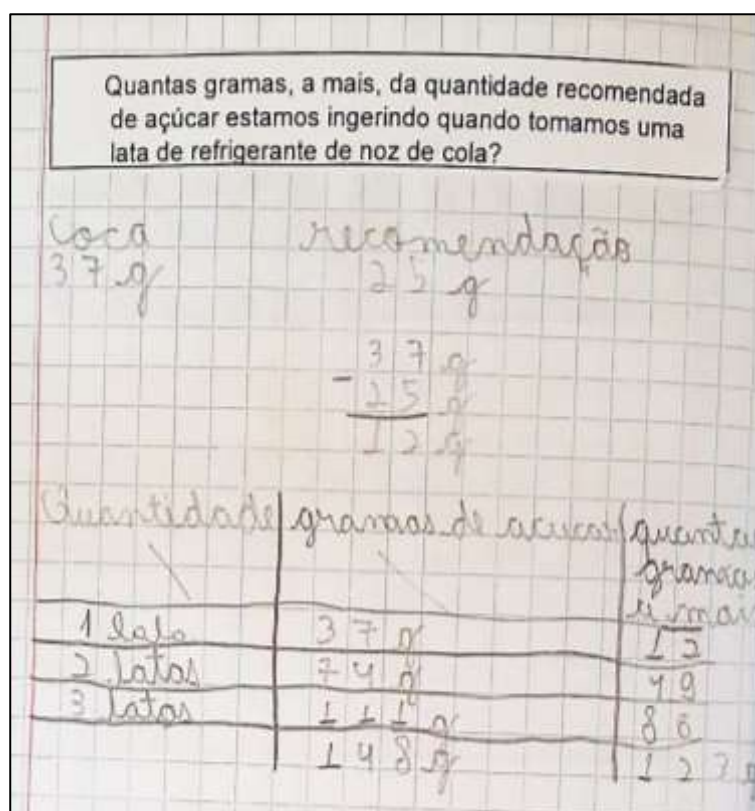 Quantas gramas, a mais, da quantidade recomendada
de açúcar estamos ingerindo quando tomamos uma
lata de refrigerante de noz de cola?
coca recomendação
37 g 25 g
37 g
- 25 g
12 g
Quantidade gramas de acucar quanta
grama
a mai
1 lata 37 g 12
2 latas 74 g 49
3 latas 111 g 86
148 g 123 g